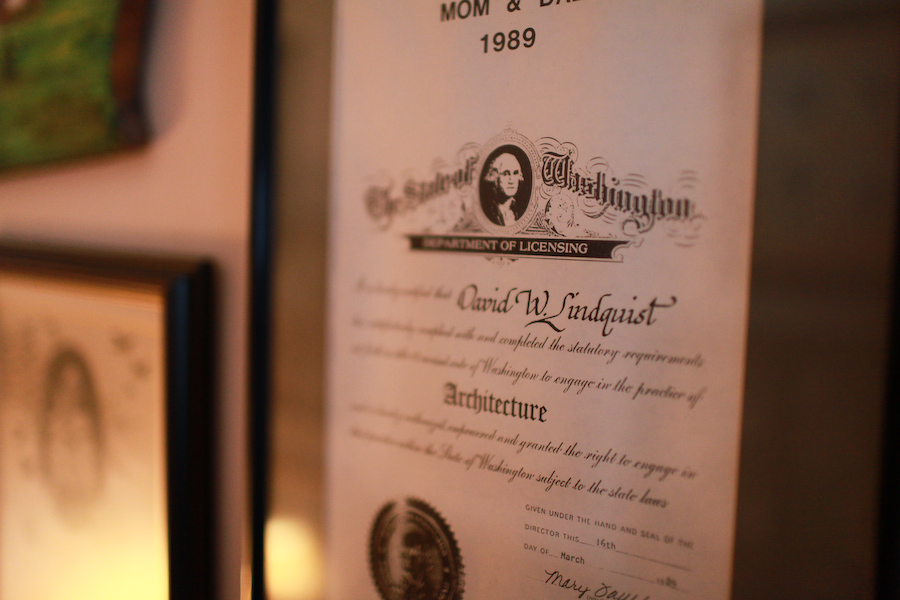 MOM & DAD
1989
The State of Washington
DEPARTMENT OF LICENSING
that David W. Lindquist
with and completed the statutory requirements
of Washington to engage in the practice of
Architecture
empowered and granted the right to engage in
the State of Washington subject to the state laws
GIVEN UNDER THE HAND AND SEAL OF THE
DIRECTOR THIS 16th
DAY OF March
Mary